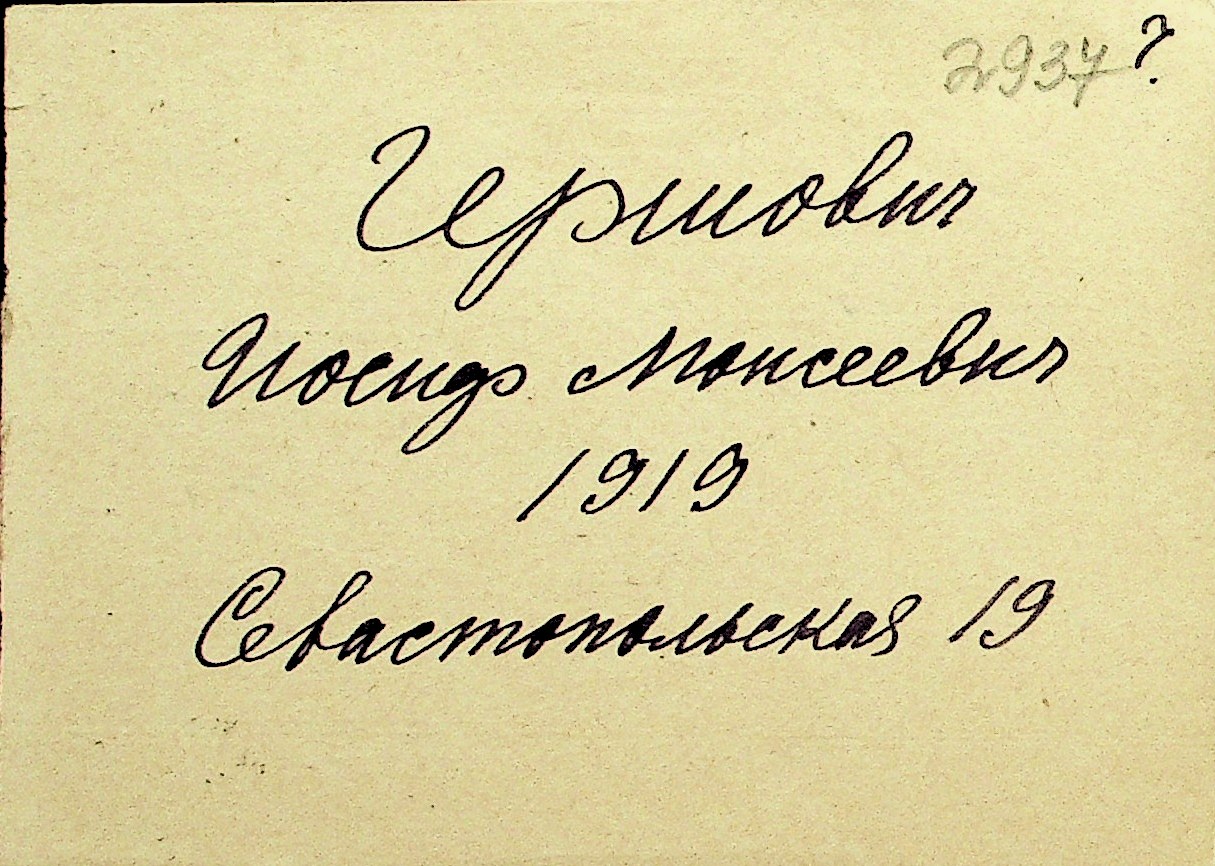 2937 ?
Гершович
Иосиф Моисеевич
1919
Севастопольская 19